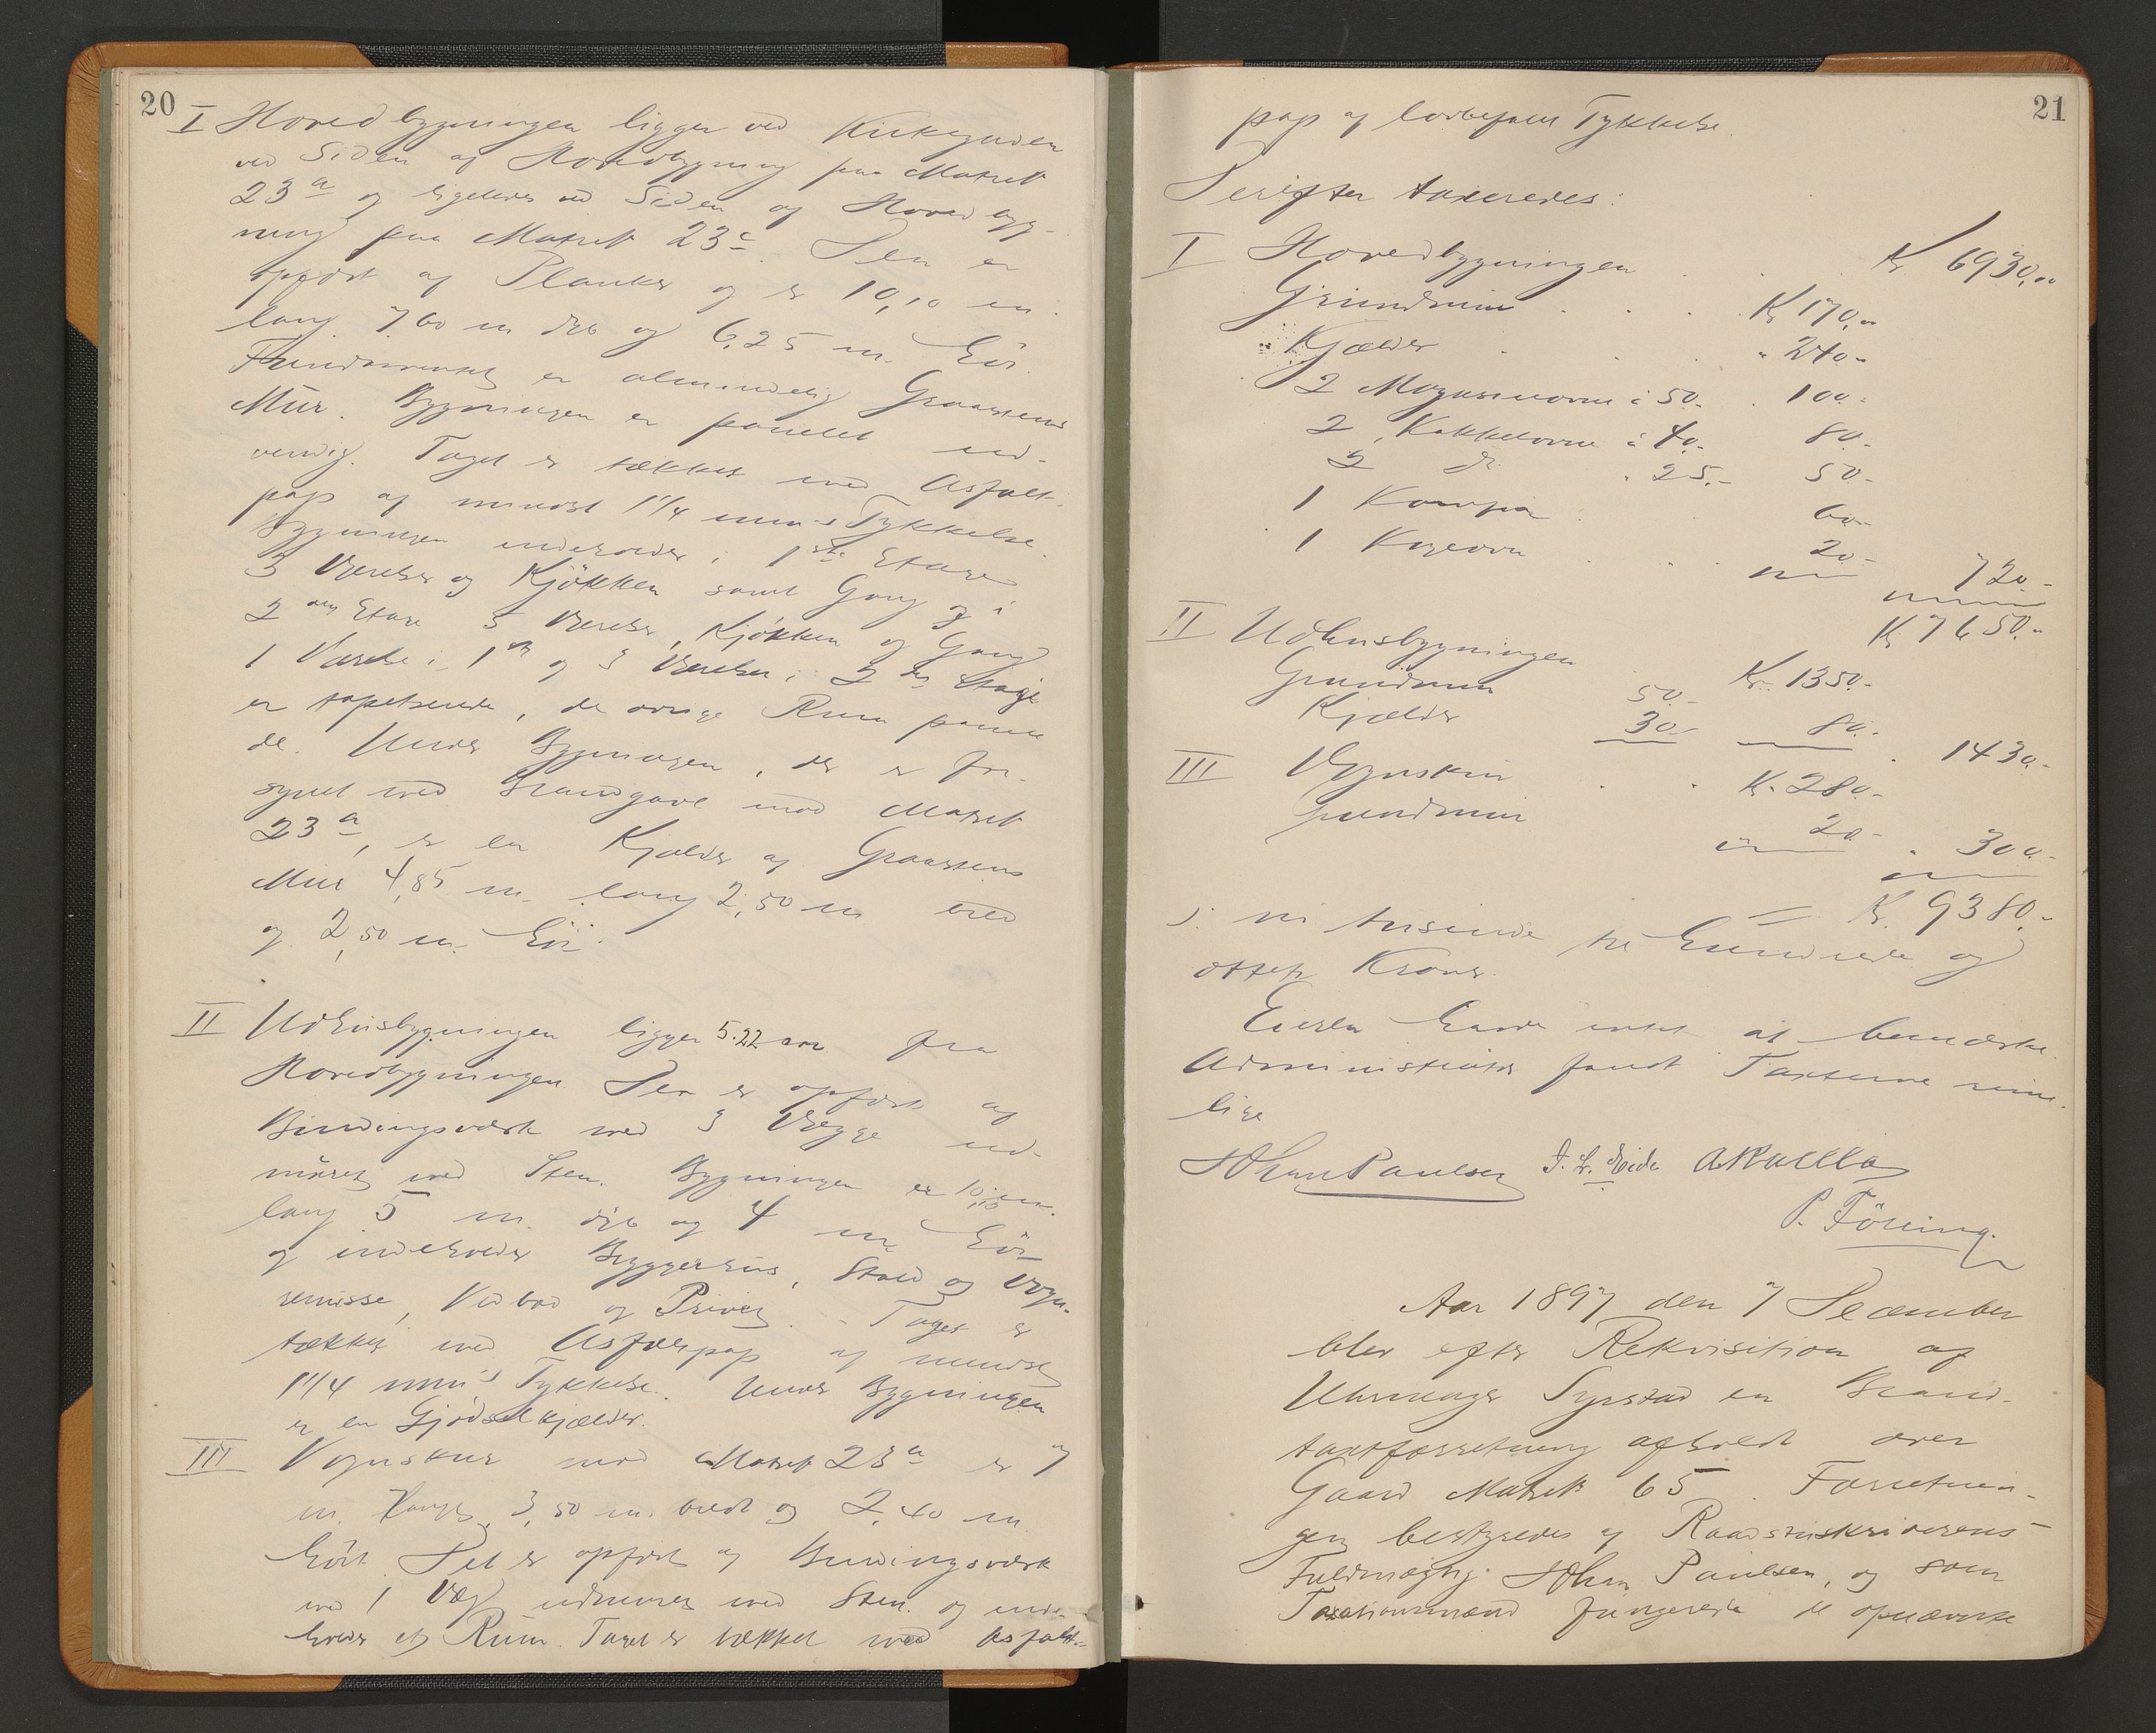 20
I Hovedbygningen ligger ved Kirkegaden
ved Siden af Hovedbygning paa Matrik
23a og ligeledes ved Siden af Hovedbyg-
ning paa Matrik 23c. Den er
opført af Planker og er 10,10 m
lang 7,60 m dyb og 6,25 m. høi.
Fundamentet er almindelig Graastens
Mur. Bygningen er panelet ud-
vendig. Taget er tækket med Asfalt-
pap af mindst 1 1/4 mm's Tykkelse.
Bygningen indeholder i 1ste Etage
3 Værelser og Kjøkken samt Gang og i
2den Etage 3 Værelser, Kjøkken og Gang
1 Værelse i 1ste og 3 Værelser i 2den Etage
er tapetserede, de øvrige Rum pane
de. Under Bygningen, der er for-
synet med Brandgavl mod Matrik
23a, er en Kjælder af Graastens
Mur 4,85 m. lang 2,50 m bred
og 2,50 m. høi.
II Udhusbygningen ligger 5.22 m fra
Hovedbygningen. Den er opført af
Bindingsværk med 3 Vægge ud-
muret med Sten. Bygningen er 10,10 m.
lang 5 m. dyb og 4 m. høi
og indeholder Bryggerhus, Stald og Vogn-
remisse, Vedbod og Privet. - Taget er
tækket med Asfaltpap af mindst
1 1/4 mm's Tykkelse. Under Bygningen
er en Gjødselkjælder.
III Vognskur mod Matrik 23a er 7
m. langt, 3,50 m. bredt og 2,40 m
høit. Det er opført af Bindingsværk
med 1 Væg udmuret med Sten. og inde-
holder et Rum. Taget er tækket med Asfalt-
21
pap af lovbefalet Tykkelse.
Derefter taxeredes:
I Hovedbygningen Kr 6930,00
Grundmur Kr 170,-
Kjælder " 240-
2 Magasinovne à 50.- 100.-
2 Kakkelovne à 40.- 80.-
2 do " 25.- 50.-
1 Komfur 60-
1 Kogeovn 20.- 720.-
Kr 7650.-
II Udhusbygningen Kr. 1350.-
Grundmur 50.-
Kjælder 30.- 80.- 1430.-
III Vognskur Kr. 280.-
grundmur 20.- " 300.-
= Kr. 9380.-
ɔ: ni tusinde tre hundrede og
otteti Kroner.
Eieren havde intet at bemærke.
Administrator fandt Taxterne rime-
lige
Johan Paulsen J. L. Eide
P. Föring.
Aar 1897 den 7 December
blev efter Rekvisition af
Uhrmager Syrstad en Brand-
taxtforretning afholdt over
Gaard Matrik 65. Forretnin-
gen bestyredes af Raadstuskriverens
Fuldmægtig Johan Paulsen, og som
Taxationsmænd fungerede de opnævnte